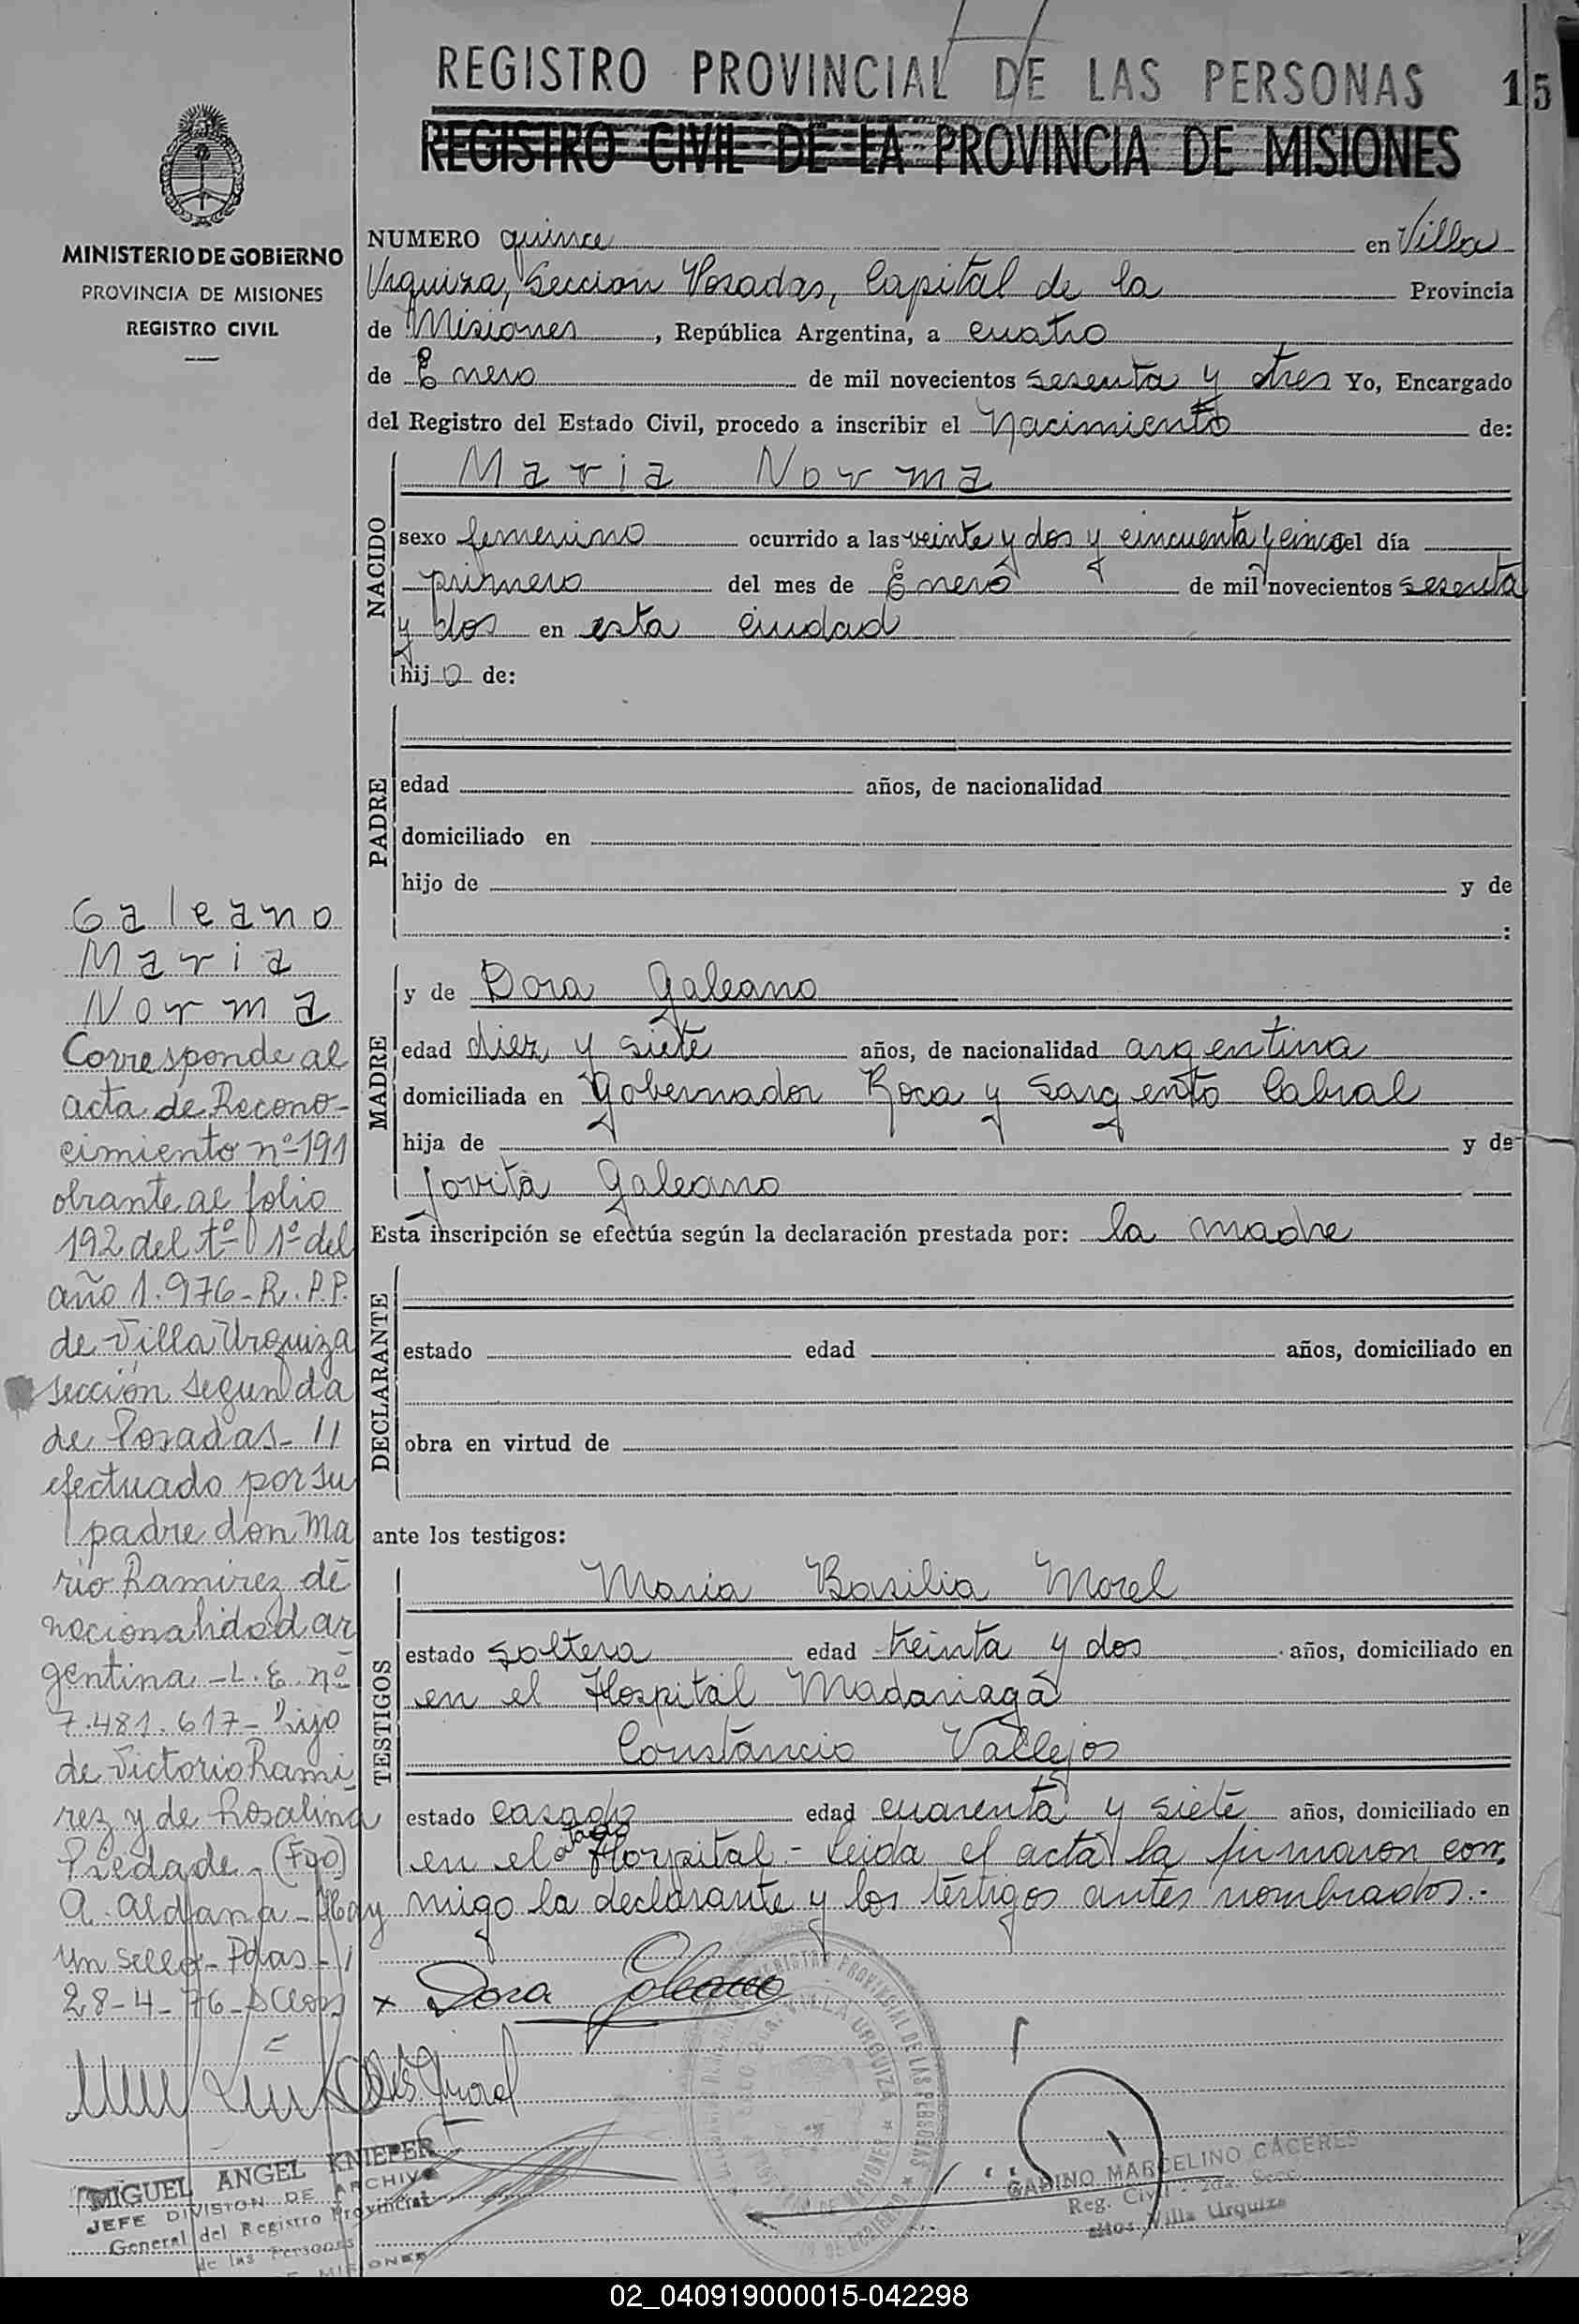 REGISTRO PROVINCIAL DE LAS PERSONAS 15
REGISTRO CIVIL DE LA PROVINCIA DE MISIONES
MINISTERIO DE GOBIERNO
PROVINCIA DE MISIONES
REGISTRO CIVIL
NUMERO quince en Villa
Urquiza, Seccion Posadas, Capital de la Provincia
de Misiones, República Argentina, a cuatro
de Enero de mil novecientos sesenta y tres Yo, Encargado
del Registro del Estado Civil, procedo a inscribir el Nacimiento de:
NACIDO
Maria Norma
sexo femenino ocurrido a las veinte y dos y cincuenta y cinco del día
primero del mes de Enero de mil novecientos sesenta
y dos en esta ciudad
hija de:
PADRE
edad años, de nacionalidad
domiciliado en
hijo de y de
:
MADRE
y de Dora Galeano
edad diez y siete años, de nacionalidad argentina
domiciliada en Gobernador Roca y Sargento Cabral
hija de y de
Jovita Galeano
Esta inscripción se efectúa según la declaración prestada por: la madre
DECLARANTE
estado edad años, domiciliado en
obra en virtud de
ante los testigos:
TESTIGOS
Maria Basilia Morel
estado soltera edad treinta y dos años, domiciliado en
en el Hospital Madariaga
Constancio Vallejos
estado casado edad cuarenta y siete años, domiciliado en
en el Hospital.- Leida el acta la firmaron con
migo la declarante y los testigos antes nombrados.-
x Dora Galeano
Galeano
Maria
Norma
Corresponde al
acta de Recono-
cimiento nº 191
obrante al folio
192 del tº 1º del
año 1.976- R.P.P.
de Villa Urquiza
sección segunda
de Posadas- //
efectuado por su
padre don Ma
rio Ramirez de
nacionalidad ar
gentina -L.E. nº
7.481.617- hijo
de Victorio Rami
rez y de Rosalina
Piedade- (Fdo)
A. Aldana- Hay
un sello- Pdas-
28-4-76-
MIGUEL ANGEL KNIEPER
JEFE DIVISION DE ARCHIVO
General del Registro Provincial
de las Personas
MISIONES
REGISTRO PROVINCIAL DE LAS PERSONAS
VILLA URQUIZA
GABINO MARCELINO CACERES
Reg. Civil - 2da. Secc.
Villa Urquiza
02_040919000015-042298